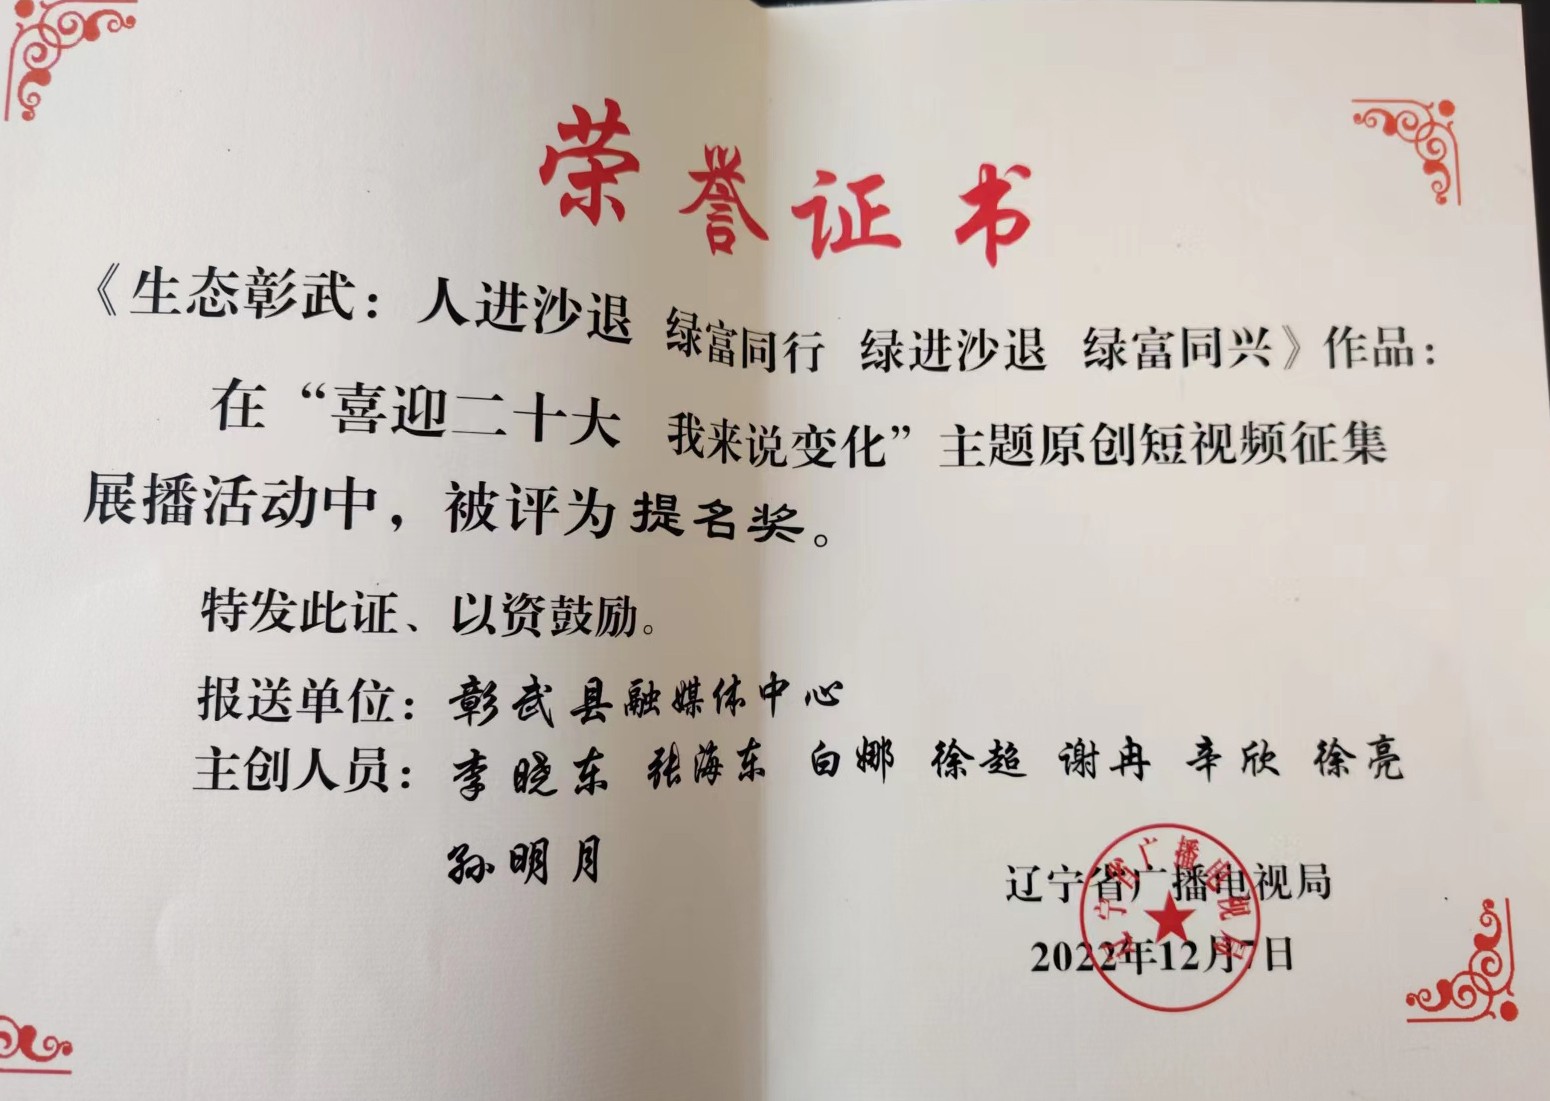 荣誉证书
《生态彰武：人进沙退 绿富同行 绿进沙退 绿富同兴》作品：
在“喜迎二十大 我来说变化”主题原创短视频征集
展播活动中，被评为提名奖。
特发此证、以资鼓励。
报送单位：彰武县融媒体中心
主创人员：李晓东 张海东 白娜 徐超 谢冉 辛欣 徐亮
孙明月
辽宁省广播电视局
2022年12月7日
辽宁省广播电视局